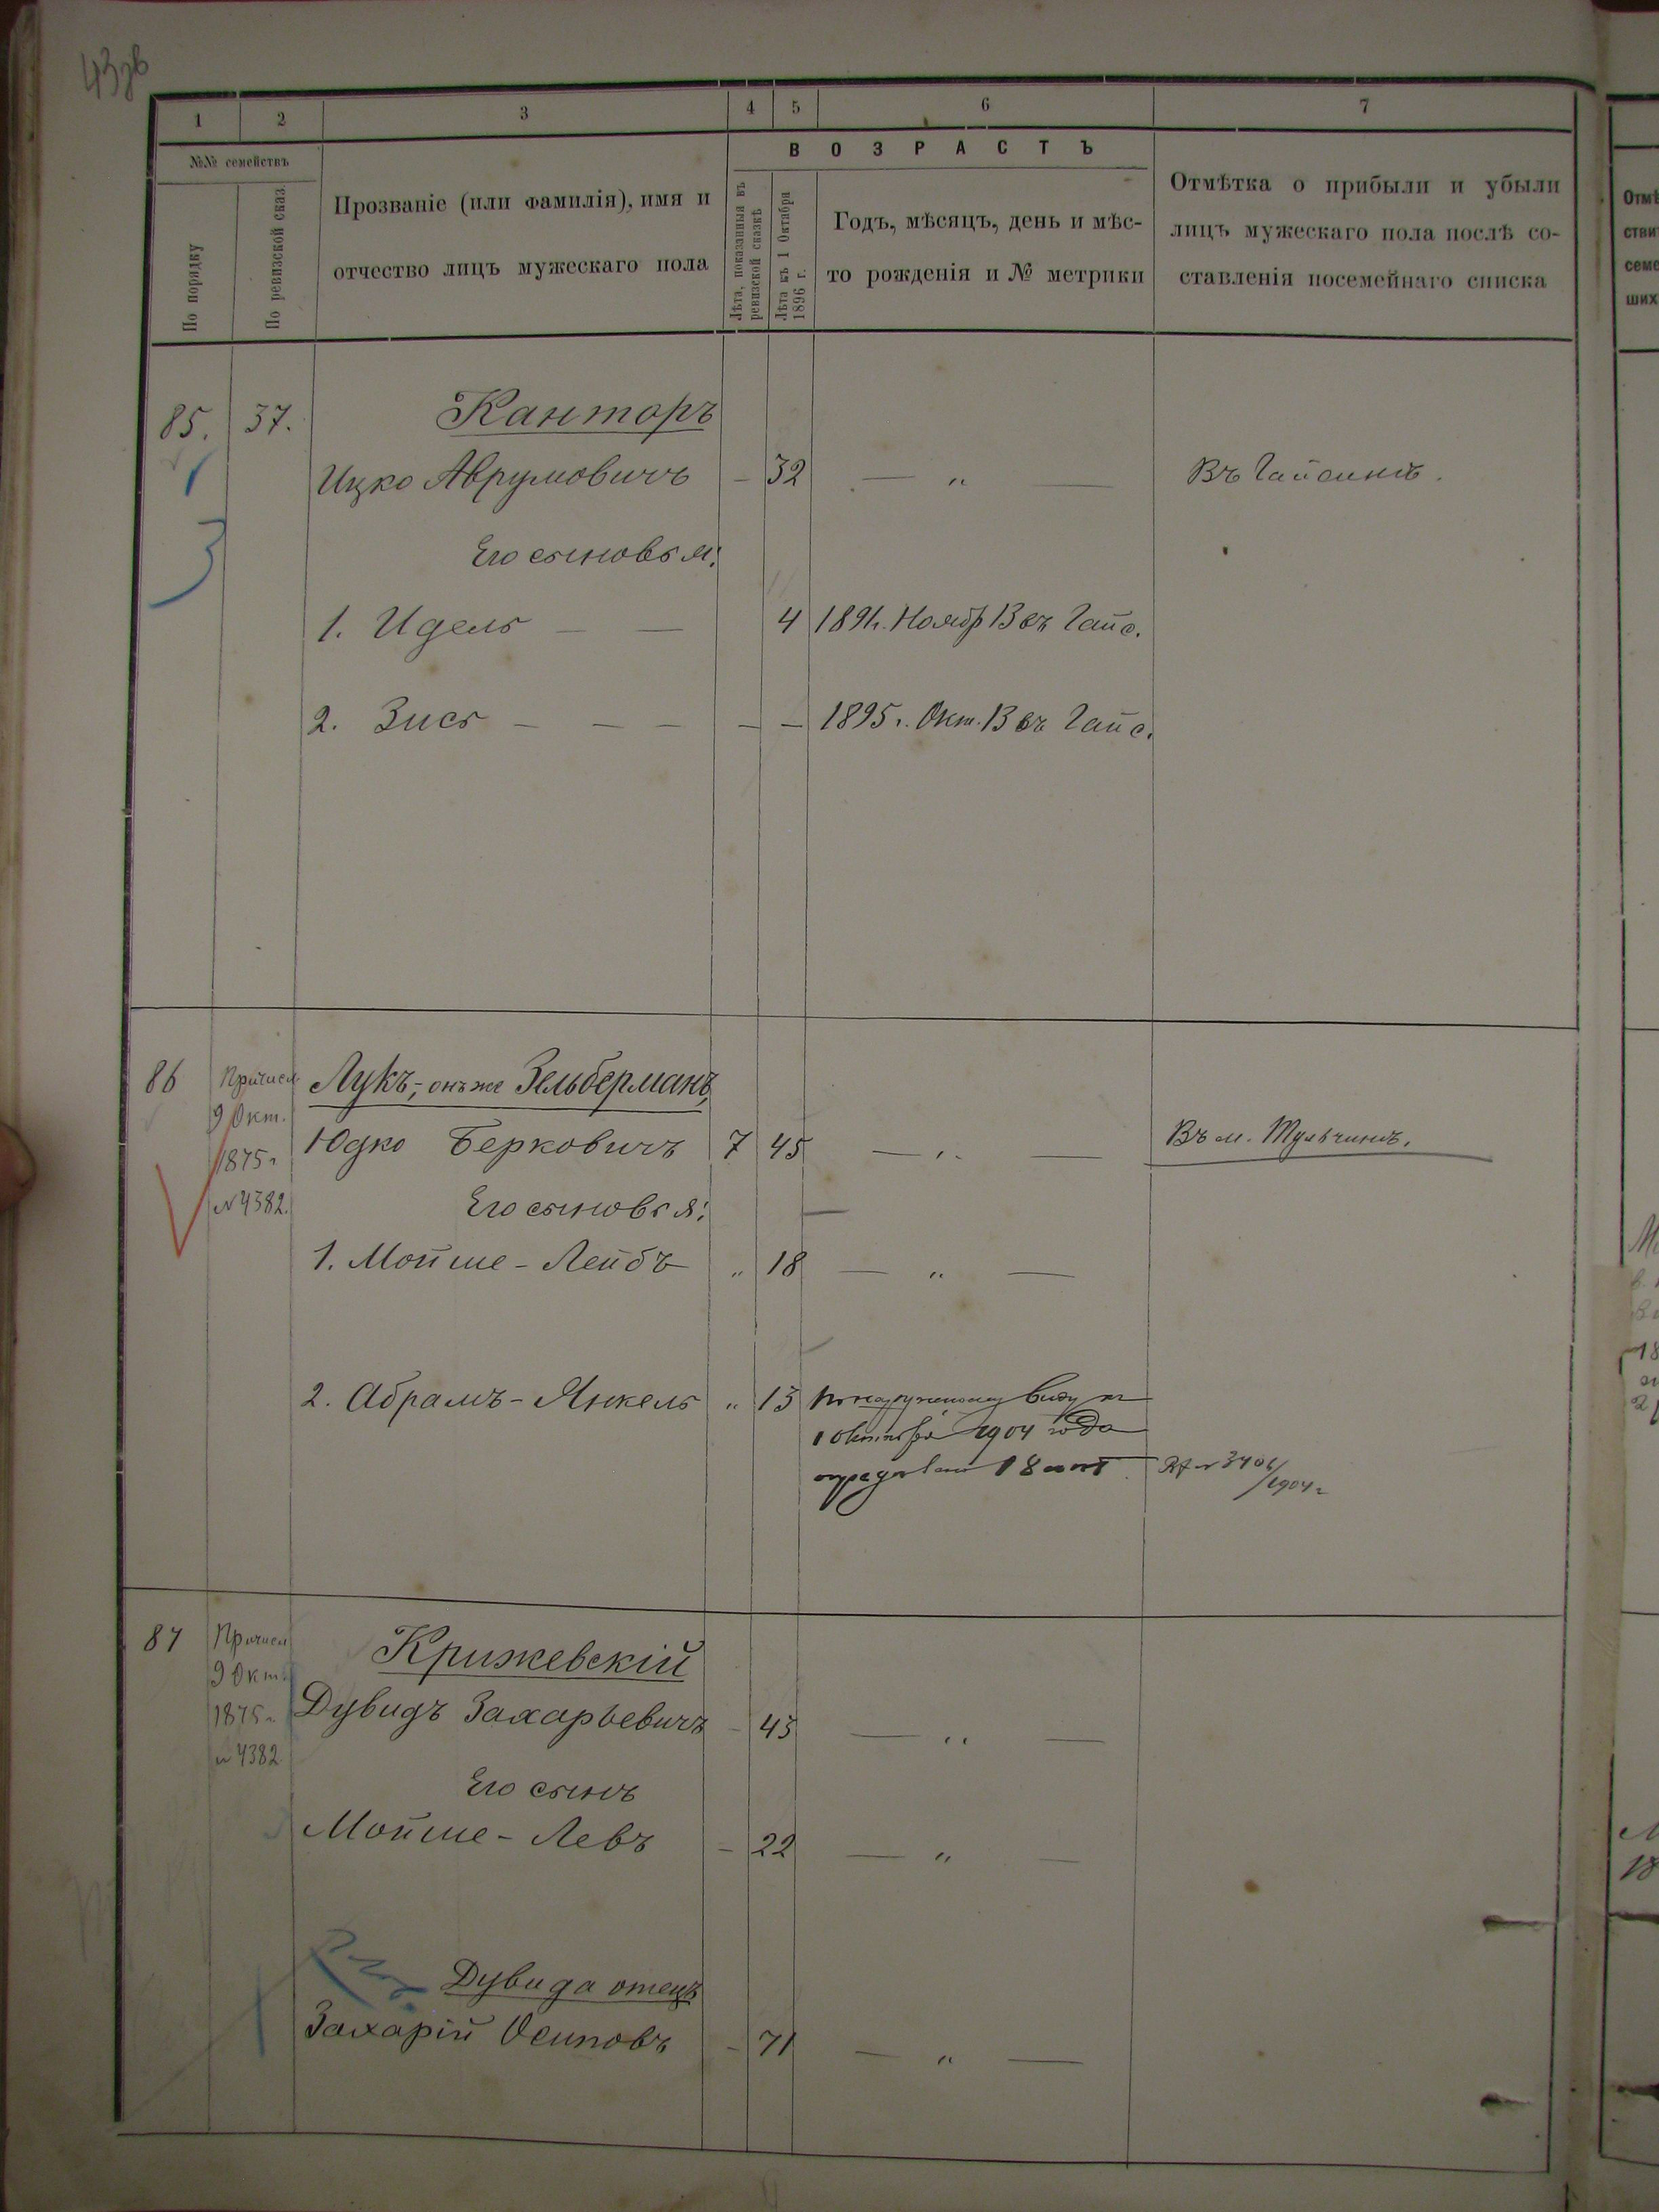 43зв
1 2 3 4 5 6 7
№№ семействъ
По порядку
По ревизской сказ.
Прозваніе (или фамилія), имя и
отчество лицъ мужескаго пола
ВОЗРАСТЪ
Лѣта, показанныя въ
ревизской сказкѣ
Лѣта къ 1 Октября
1896 г.
Годъ, мѣсяцъ, день и мѣс-
то рожденія и № метрики
Отмѣтка о прибыли и убыли
лицъ мужескаго пола послѣ со-
ставленія посемейнаго списка
85. 37. Канторъ
Ицко Аврумовичъ - 32 — „ — Въ Гайсинѣ.
3
Его сыновья:
1. Идель — — 4 1891г. Ноябр 13 въ Гайс.
2. Зись — — — — — 1895г. Окт. 13 въ Гайс.
86 Причисл. Лукъ, онъ же Зельберманъ,
9 Окт.
Юдко Берковичъ 7 45 — „ — Въ м. Тульчинѣ.
1875г.
№ 4382.
Его сыновья:
1. Мойше-Лейбъ „ 18 — „ —
2. Абрамъ-Янкель „ 13 по наружному виду къ
1 Октября 1904 года
опредѣленъ 18 лѣтъ № 3406/1904г.
87 Причисл Крижевскій
9 Окт.
Дувидъ Захарьевичъ - 43 — „ —
1875г.
№ 4382
Его сынъ
Мойше-Левъ - 22 — „ —
Дувида отецъ
Захарій Осиповъ - 71 — „ —
Отмѣ
стви
семе
ших